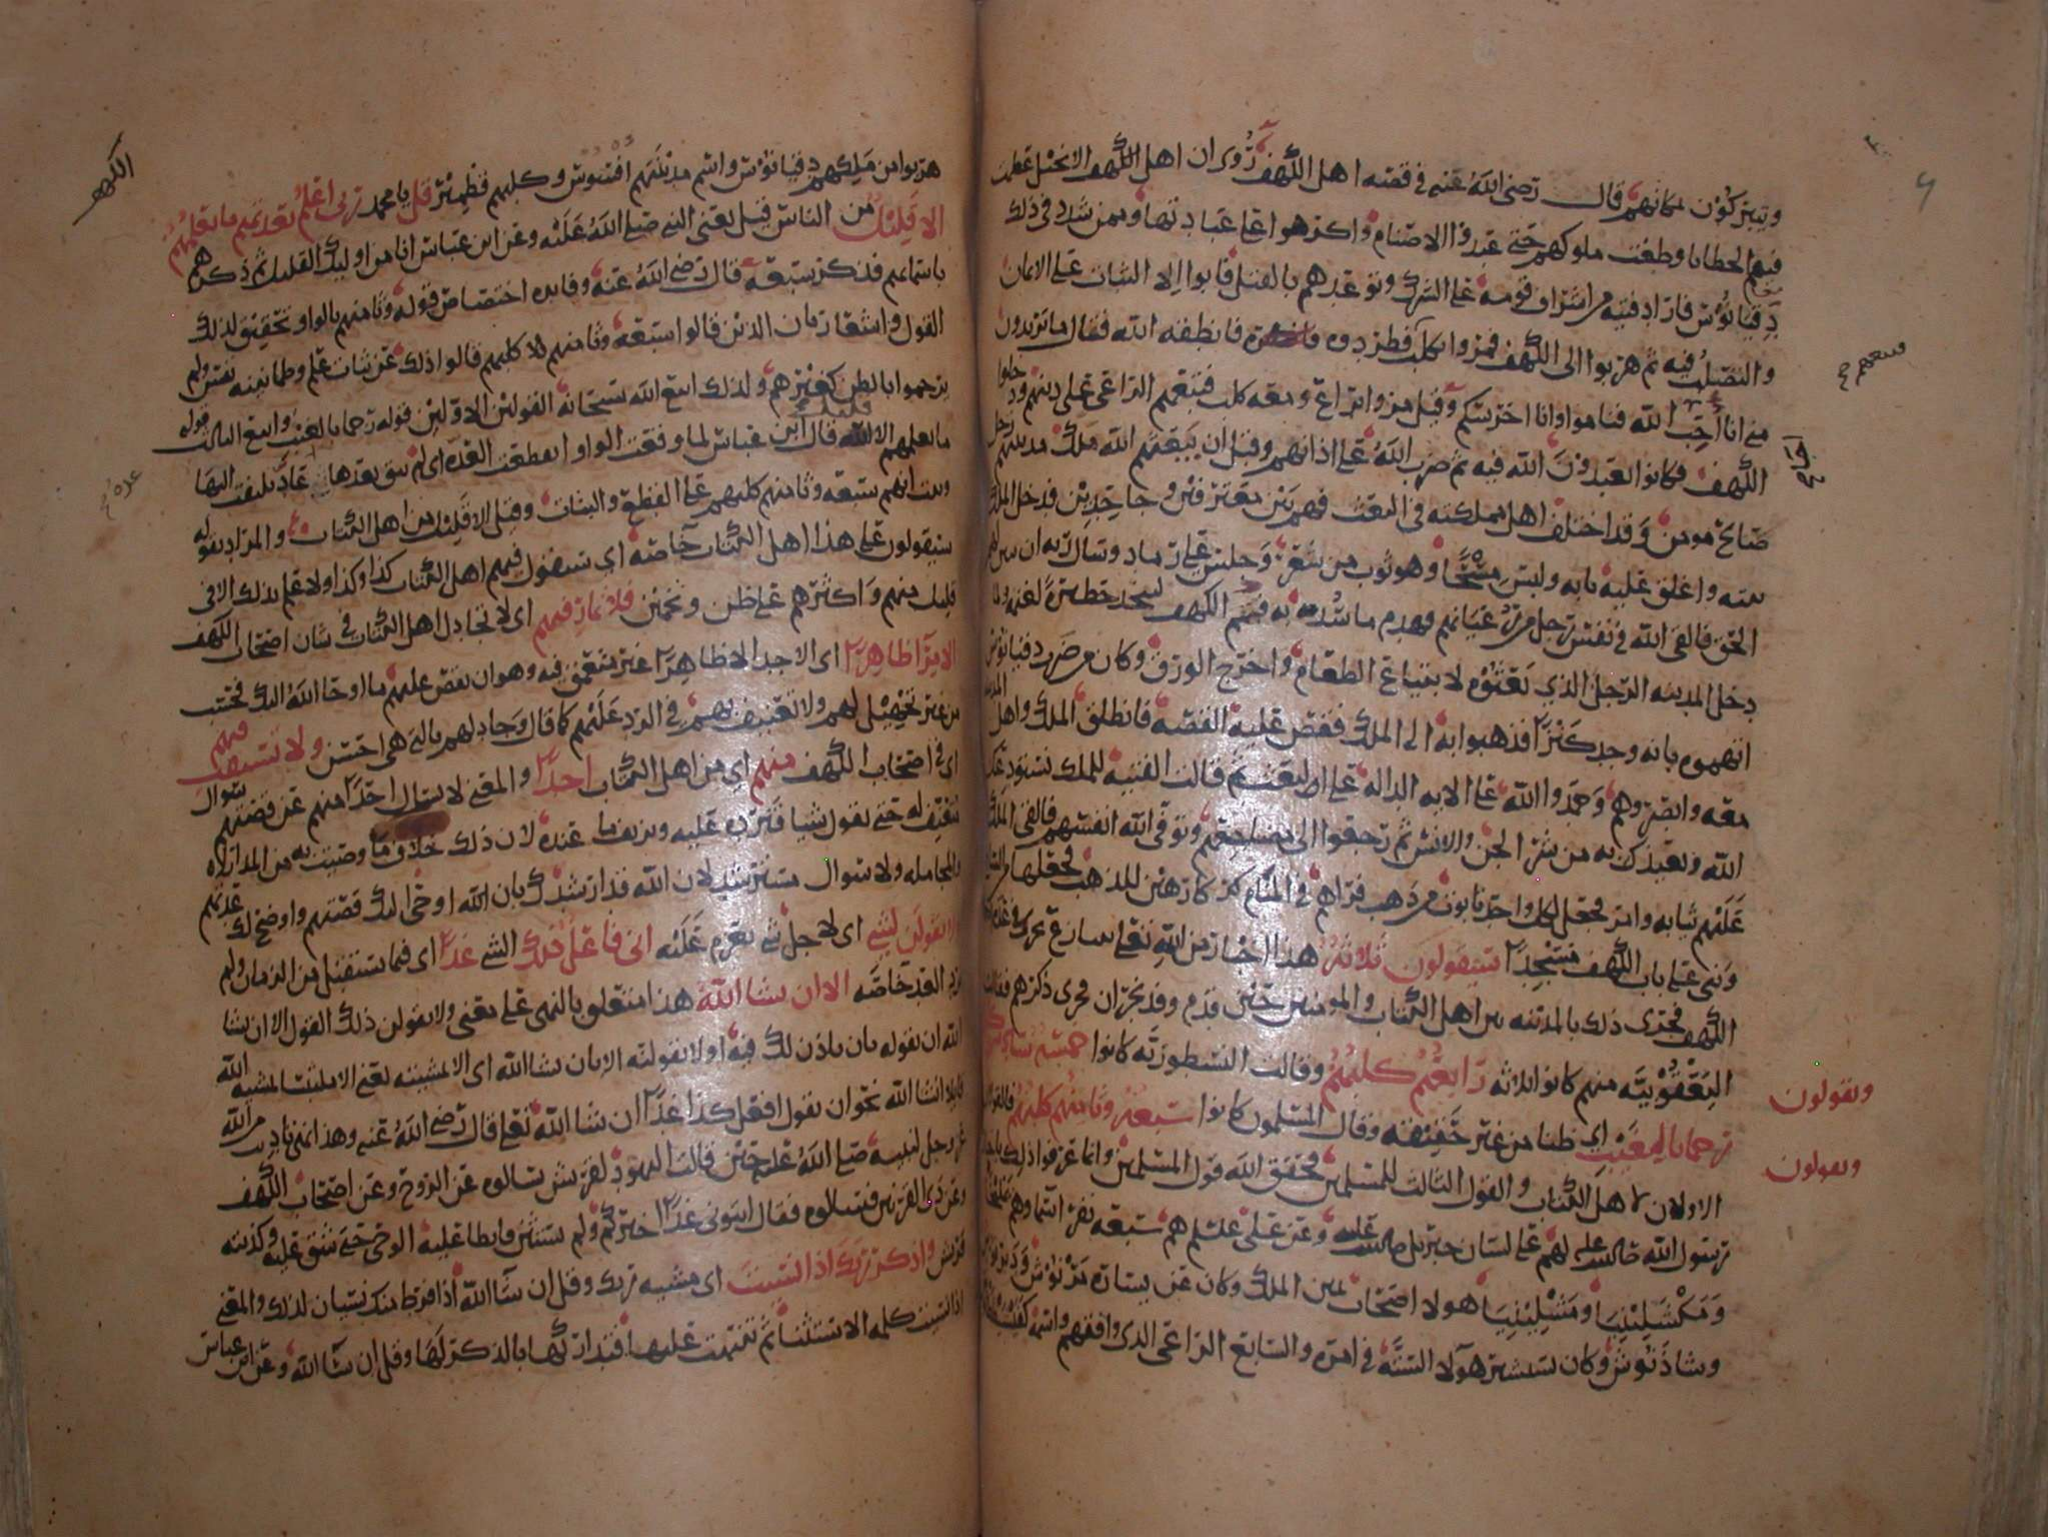 ويتبركون بمكانهم قال رضى الله عنه في قصه اهل الكهف رُوى ان اهل الانجيل عظمت
فيهم الخطايا وطغت ملوكهم حتى عبدوا الاصنام واكرهوا على عبادتها وممن شدد في ذلك
دقيانوس فاراد فتيه من اشراف قومه على الشرك وتوعدهم بالقتل فابوا الا الثبات على الايمان
والتصلب فيه ثم هربوا الى الكهف فمروا بكلب فطردوه فانطقه الله فقال ما تريدون
مني انا احب الله فناموا وانا احرسكم وقيل مروا براعى ومعه كلب فتبعهم الراعى على دينهم ودخلوا
الكهف فكانوا يعبدون الله فيه ثم ضرب الله على اذانهم وقبل ان يبعثهم الله ملك مدينتهم رجل
صالح مومن وقد اختلف اهل مملكته في البعث فهم بين معترفين وجاحدين فدخل الملك
بيته واغلق عليه بابه ولبس مسحًا وهو ثوب من شعر وجلس على رماد وسال ربه ان يبين لهم
الحق فالقى الله في نفس رجل من رعيانهم فهدم ما سُد به فم الكهف ليتخذ حظيرة لغنمه ولما
دخل المدينه الرجل الذي بعثوه لابتياع الطعام واخرج الورق وكان من ضرب دقيانوس
اتهموه بانه وجد كنزا فذهبوا به الى الملك فقص عليه القصه فانطلق الملك واهل المدينه
معه وابصروهم وحمدوا الله على الايه الداله على البعث ثم قالت الفتيه للملك نستودعك
الله ونعيذك به من شر الجن والانس ثم رجعوا الى مضاجعهم وتوفى الله انفسهم فالقى الملك
عليهم ثيابه وامر فجعل لكل واحد تابوت من ذهب فراهم في المنام كارهين للذهب فجعلها من الساج
وبنى على باب الكهف مسجدا سيقولون ثلاثة هذا اخبار من الله تعالى
الكهف فجرى ذلك بالمدينه بين اهل الكتاب والمومنين حين قدم وفد نجران فجرى ذكرهم فقالت
اليعقوبيه منهم كانوا ثلاثه رابعهم كلبهم وقالت النسطوريه كانوا خمسة سادسهم
رجما بالغيب اي ظنا من غير حقيقه وقال المسلمون كانوا سبعة وثامنهم كلبهم
الاولان لاهل الكتاب والقول الثالث للمسلمين فحقق الله قول المسلمين وانما عرفوا ذلك
رسول الله لهم على لسان جبريل وعن على هم سبعه نفر اسماوهم
ومكشلينيا ومشلينيا هولا اصحاب يمين الملك وكان عن يساره مرنوش ودبرنوش
وشاذنوش وكان يستشير هولا السته في امره والسابع الراعى الذي وافقهم واسمه
ويقولون
ويقولون
الكهف
هربوا من ملكهم دقيانوس واسم مدينتهم افسوس وكلبهم قطمير قل يا محمد ربى اعلم بعدتهم ما يعلمهم
الا قليل من الناس قيل يعنى النبي صلى الله عليه وعن ابن عباس انا من اوليك القليل ثم ذكرهم
باسمايهم فذكر سبعه قال رضى الله عنه وفايده اختصاص قوله وثامنهم بالواو تحقيق لذلك
القول واشعار بان الذين قالوا سبعه وثامنهم كلبهم قالوا ذلك عن ثبات علم وطمانينه نفس ولم
يرجموا بالظن كغيرهم ولذلك اتبع الله سبحانه القولين الاولين قوله رجما بالغيب واتبع الثالث قوله
ما يعلمهم الا قليل قال ابن عباس لما وقعت الواو انقطعت العده اي لم يبق بعدها عاد يلتفت اليها
وثبت انهم سبعه وثامنهم كلبهم على القطع والثبات وقيل الا قليل من اهل الكتاب والمراد بقوله
سيقولون على هذا اهل الكتاب خاصه اي سيقول فيهم اهل الكتاب كذا وكذا ولا علم بذلك الا في
قليل منهم واكثرهم على ظن وتخمين فلا تمار فيهم اى لا تجادل اهل الكتاب في شان اصحاب الكهف
الا مرآ ظاهرا اى الا جدالا ظاهرا غير متعمق فيه وهو ان تقص عليهم ما اوحا الله اليك فحسب
من غير تجهيل لهم ولا تعنيف بهم في الرد عليهم كما قال وجادلهم بالتي هى احسن ولا تستفت فيهم
اى في اصحاب الكهف منهم اى من اهل الكتاب احدا والمعنى لا تسال احدا منهم عن قصتهم سوال
متعنت له حتى يقول شيا فترده عليه وتزيف ما عنده لان ذلك خلاف ما وصيت به من المداراه
والمجامله ولا سوال مسترشد لان الله قد ارشدك بان الله اوحى اليك قصتهم واوضح لك عدتهم
ولا تقولن لشي اى لاجل شي تعزم عليه انى فاعل ذلك الشي غدا اى فيما يستقبل من الزمان ولم
يرد الغد خاصه الا ان يشا الله هذا متعلق بالنهى على معنى ولا تقولن ذلك القول الا ان يشا
الله ان تقوله بان ياذن لك فيه او لا تقولنه الا بان يشا الله اى الا بمشيته يعنى الا ملتبسا بمشيه الله
قايلا ان شا الله نحو ان تقول افعل كذا غدا ان شا الله تعالى قال رضى الله عنه وهذا نهى تاديب من الله
عز وجل لنبيه صلى الله عليه حين قالت اليهود لقريش سالوه عن الروح وعن اصحاب الكهف
وعن ذى القرنين فسالوه فقال ايتونى غدا اخبركم ولم يستثن فابطا عليه الوحى حتى شق عليه وكذبته
قريش واذكر ربك اذا نسيت اى مشيه ربك وقل ان شا الله اذا فرط منك نسيان لذلك والمعنى
اذا نسيت كلمه الاستثنا ثم تنبهت عليها فتداركها بالذكر لها وقل ان شا الله وعن ابن عباس